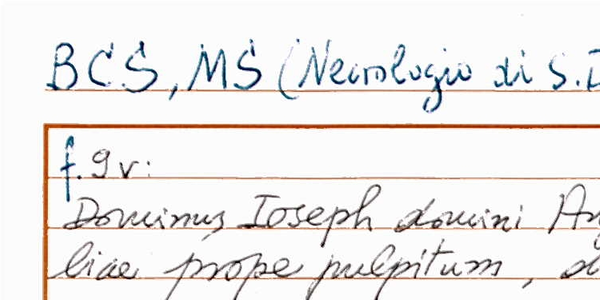 BCS, MS (Necrologio di S.D
f. 9v:
Dominus Ioseph domini An
liae prope pulpitum, d